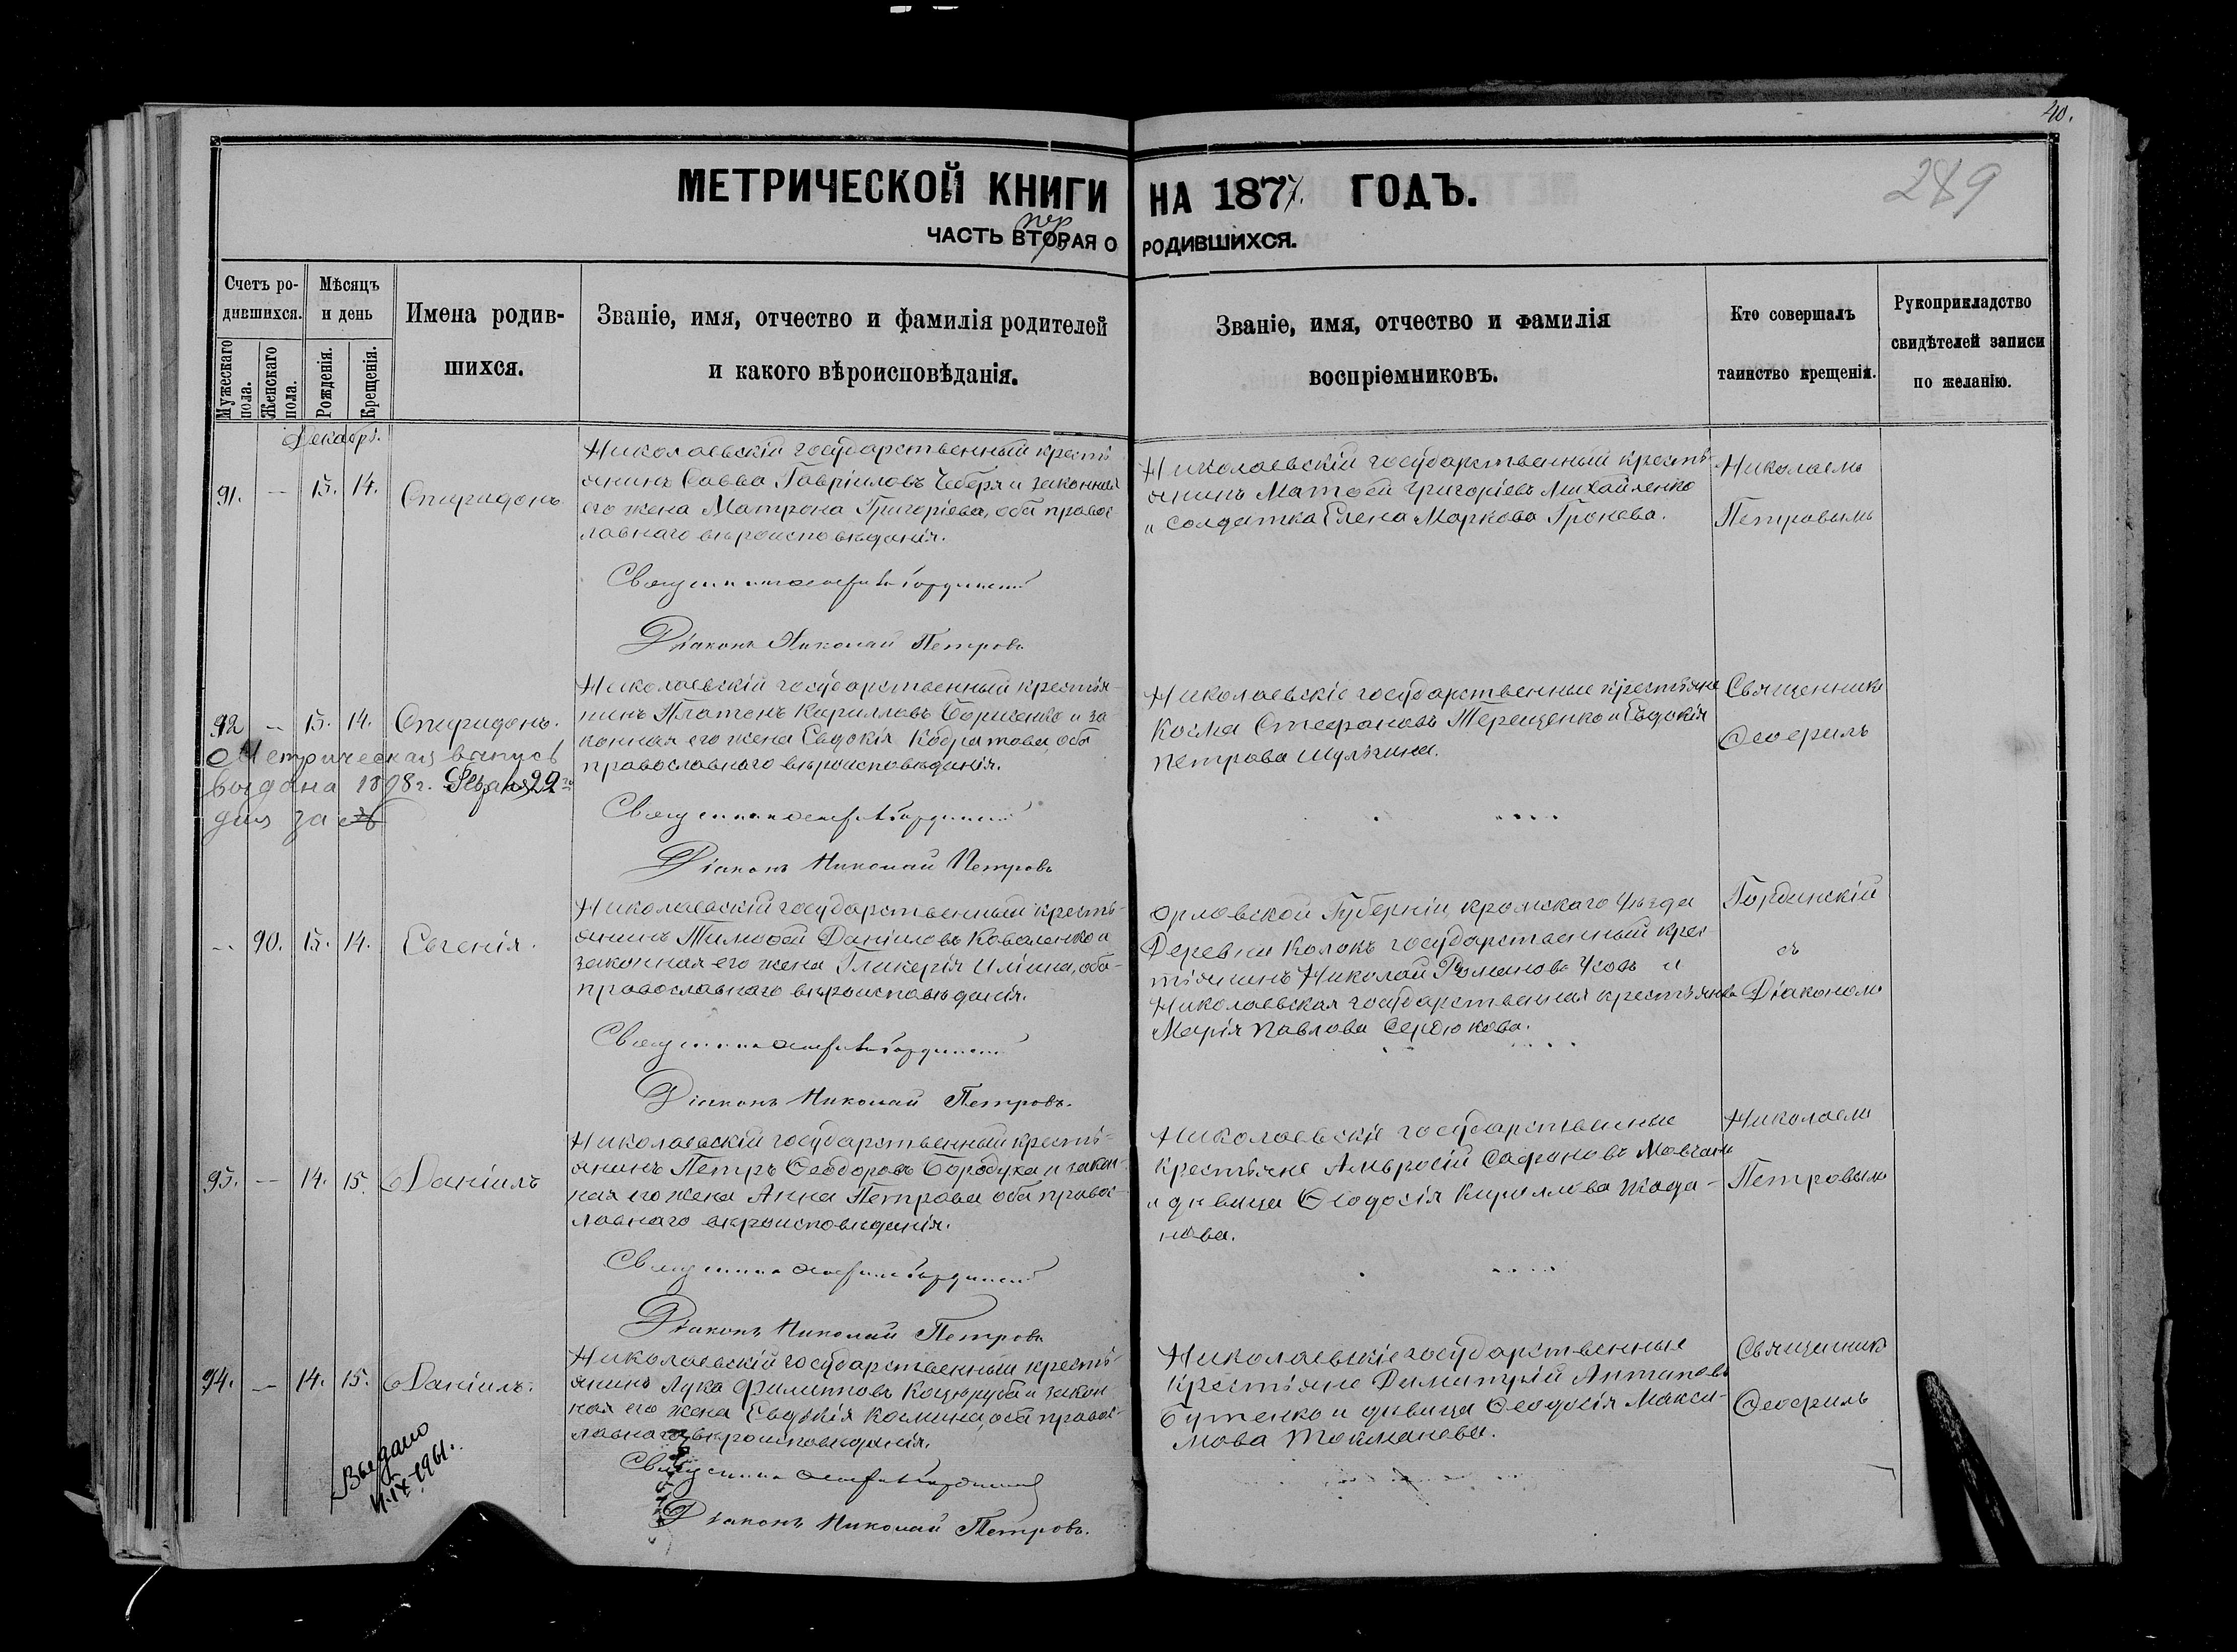 40.
289
МЕТРИЧЕСКОЙ КНИГИ НА 1877. ГОДЪ.
ЧАСТЬ ВТОРАЯ О РОДИВШИХСЯ.
пер
Счетъ родившихся.
Мужескаго пола.
Женскаго пола.
Мѣсяцъ и день
Рожденія.
Крещенія.
Имена родившихся.
Званіе, имя, отчество и фамилія родителей
и какого вѣроисповѣданія.
Званіе, имя, отчество и фамилія
воспріемниковъ.
Кто совершалъ
таинство крещенія.
Рукоприкладство
свидѣтелей записи
по желанію.
Декабрь.
91. — 13. 14. Спиридонъ
Николаевскій государственный кресть
янинъ Савва Гавріиловъ Чеберя и законная
его жена Матрона Григоріева, оба правос
лавнаго вѣроисповѣданія.
Священникъ Гординскій
Діаконъ Николай Петровъ
Николаевскій государственный кресть
янинъ Матѳей Григоріевъ Михайленко
и солдатка Елена Маркова Гронева.
Николаемъ
Петровымъ
92 — 13. 14. Спиридонъ.
Николаевскій государственный крестья-
нинъ Платонъ Кирилловъ Борисенко и за
конная его жена Евдокія Кодратова, оба
православнаго вѣроисповѣданія.
Священникъ Гординскій
Діаконъ Николай Петровъ
Метрическая выпись
выдана 1898 г. Февраля 22 го
дня за №
Николаевскіе государственные крестьяне
Косма Стефановъ Терещенко и Евдокія
Петрова Шульгина.
Священникъ
-- 90. 13. 14. Евгенія.
Николаевскій государственный кресть-
янинъ Тимоѳей Даніиловъ Коваленко и
законная его жена Гликерія Ильина, оба-
православнаго вѣроисповѣданія.
Священникъ Гординскій
Діаконъ Николай Петровъ.
Орловской Губерніи, кромскаго Уѣзда
Деревни Колокъ государственный крес-
тьянинъ Николай Романовъ Усовъ и
Николаевская государственная крестьянка
Марія Павлова Сердюкова.
Гординскій
съ
Діакономъ
93. — 14. 15. Даніилъ
Николаевскій государственный кресть-
янинъ Петръ Ѳеодоровъ Бородуха и закон-
ная его жена Анна Петрова оба правос-
лавнаго вѣроисповѣданія.
Священникъ Гординскій
Діаконъ Николай Петровъ
Николаевскіе государственные
крестьяне Амвросій Сафоновъ Мовчанъ
и дѣвица Ѳеодосія Кириллова Жада-
нова.
Николаемъ
Петровымъ
94. — 14. 15. Даніилъ.
Николаевскій государственный кресть-
янинъ Лука Филипповъ Коцюруба и закон
ная его жена Евдокія Космина, оба правос-
лавнаго вѣроисповѣданія.
Священникъ Гординскій
Діаконъ Николай Петровъ.
Николаевскіе государственные
крестьяне Димитрій Антиповъ
Бутенко и дѣвица Ѳеодосія Макси-
мова
Священникъ
Выдано
11.IX-1961.